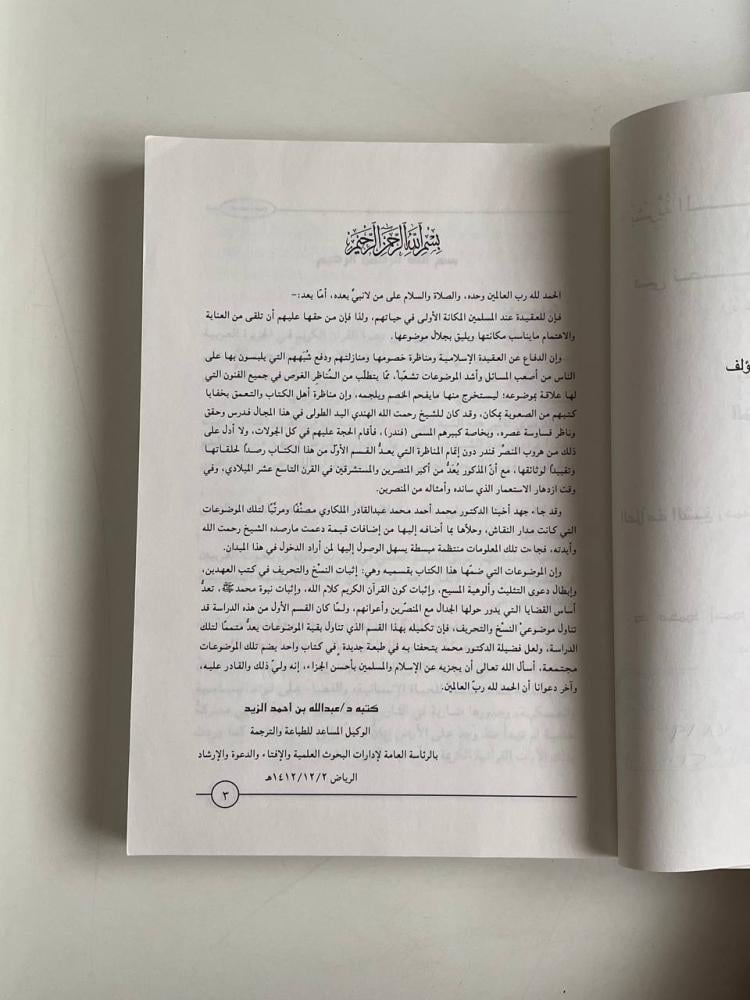 بسم الله الرحمن الرحيم
الحمد لله رب العالمين وحده، والصلاة والسلام على من لانبيَّ بعده، أمّا بعد:–
فإن للعقيدة عند المسلمين المكانة الأولى في حياتهم، ولذا فإن من حقها عليهم أن تلقى من العناية
والاهتمام مايناسب مكانتها ويليق بجلال موضوعها.
وإن الدفاع عن العقيدة الإسلامية ومناظرة خصومها ومنازلتهم ودفع شُبَههم التي يلبسون بها على
الناس من أصعب المسائل وأشد الموضوعات تشعّباً، ممّا يتطلّب من المُناظِر الغوص في جميع الفنون التي
لها علاقة بموضوعه؛ ليستخرج منها مايفحم الخصم ويلجمه، وإن مناظرة أهل الكتاب والتعمق بخفايا
كتبهم من الصعوبة بمكان، وقد كان للشيخ رحمت الله الهندي اليد الطولى في هذا المجال فدرس وحقق
وناظر قساوسة عصره، وبخاصة كبيرهم المسمى (فندر)، فأقام الحجة عليهم في كل الجولات، ولا أدل على
ذلك من هروب المنصِّر فندر دون إتمام المناظرة التي يعدُّ القسم الأول من هذا الكتاب رصداً لحلقاتها
وتقييداً لوثائقها، مع أنّ المذكور يُعَدُّ من أكبر المنصرين والمستشرقين في القرن التاسع عشر الميلادي، وفي
وقت ازدهار الاستعمار الذي سانده وأمثاله من المنصرين.
وقد جاء جهد أخينا الدكتور محمد أحمد محمد عبدالقادر الملكاوي مصنِّفًا ومرتِّبًا لتلك الموضوعات
التي كانت مدار النقاش، وحلأها بما أضافه إليها من إضافات قيمة دعمت مارصده الشيخ رحمت الله
وأيدته، فجاءت تلك المعلومات منتظمة مبسطة يسهل الوصول إليها لمن أراد الدخول في هذا الميدان.
وإن الموضوعات التي ضمّها هذا الكتاب بقسميه وهي: إثبات النسْخ والتحريف في كتب العهدين،
وإبطال دعوى التثليث وألوهية المسيح، وإثبات كون القرآن الكريم كلام الله، وإثبات نبوة محمد ﷺ، تعدُّ
أساس القضايا التي يدور حولها الجدال مع المنصّرين وأعوانهم، ولمّا كان القسم الأول من هذه الدراسة قد
تناول موضوعيْ النسْخ والتحريف، فإن تكميله بهذا القسم الذي تناول بقية الموضوعات يعدُّ متممًا لتلك
الدراسة، ولعل فضيلة الدكتور محمد يتحفنا به في طبعة جديدة في كتاب واحد يضم تلك الموضوعات
مجتمعة، أسأل الله تعالى أن يجزيه عن الإسلام والمسلمين بأحسن الجزاء، إنه وليّ ذلك والقادر عليه،
وآخر دعوانا أن الحمد لله ربّ العالمين.
كتبه د/عبدالله بن أحمد الزيد
الوكيل المساعد للطباعة والترجمة
بالرئاسة العامة لإدارات البحوث العلمية والإفتاء والدعوة والإرشاد
الرياض ١٤١٢/١٢/٢هـ
٣